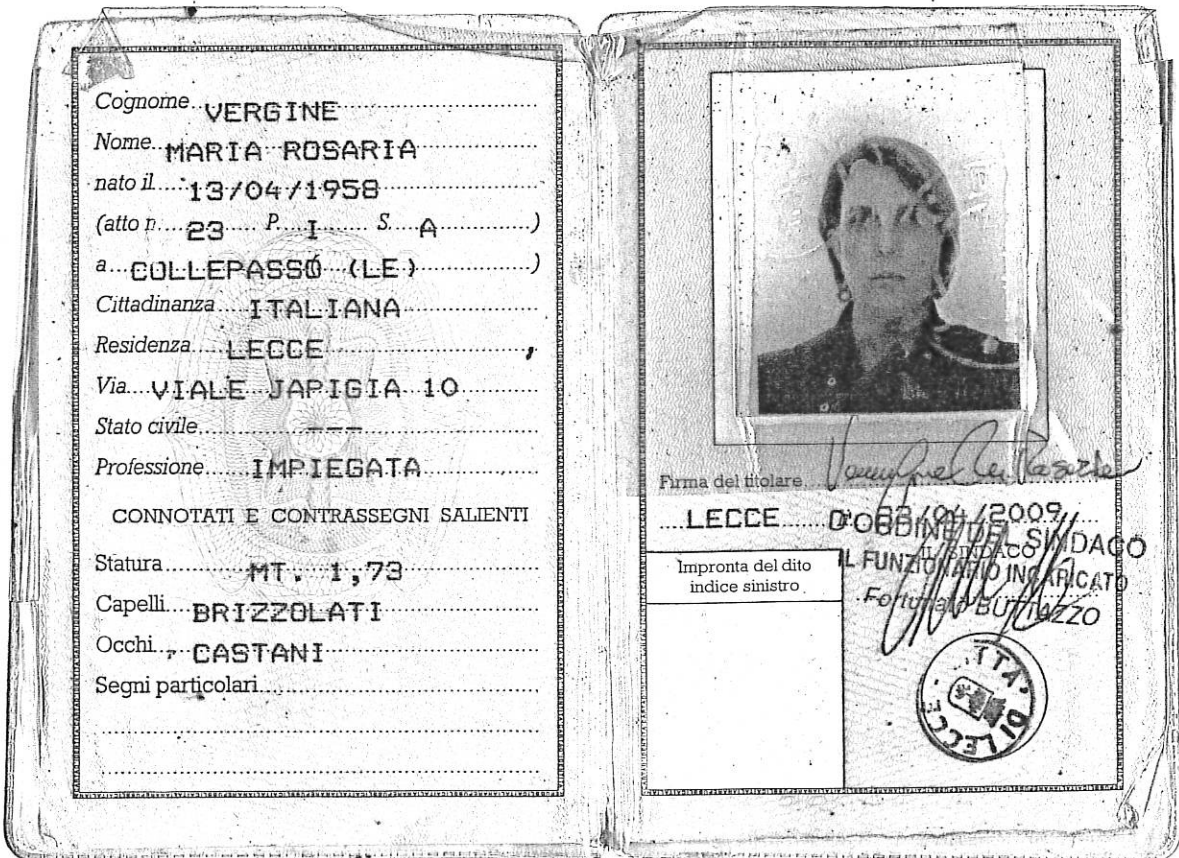 Cognome VERGINE
Nome MARIA ROSARIA
nato il 13/04/1958
(atto n. 23 P. I S. A )
a COLLEPASSO (LE) )
Cittadinanza ITALIANA
Residenza LECCE ,
Via VIALE JAPIGIA 10
Stato civile ---
Professione IMPIEGATA
CONNOTATI E CONTRASSEGNI SALIENTI
Statura MT. 1,73
Capelli BRIZZOLATI
Occhi CASTANI
Segni particolari
Firma del titolare
LECCE /04/2009
D'ORDINE DEL SINDACO
IL SINDACO
IL FUNZIONARIO INCARICATO
BUTTAZZO
Impronta del dito
indice sinistro
DI LECCE